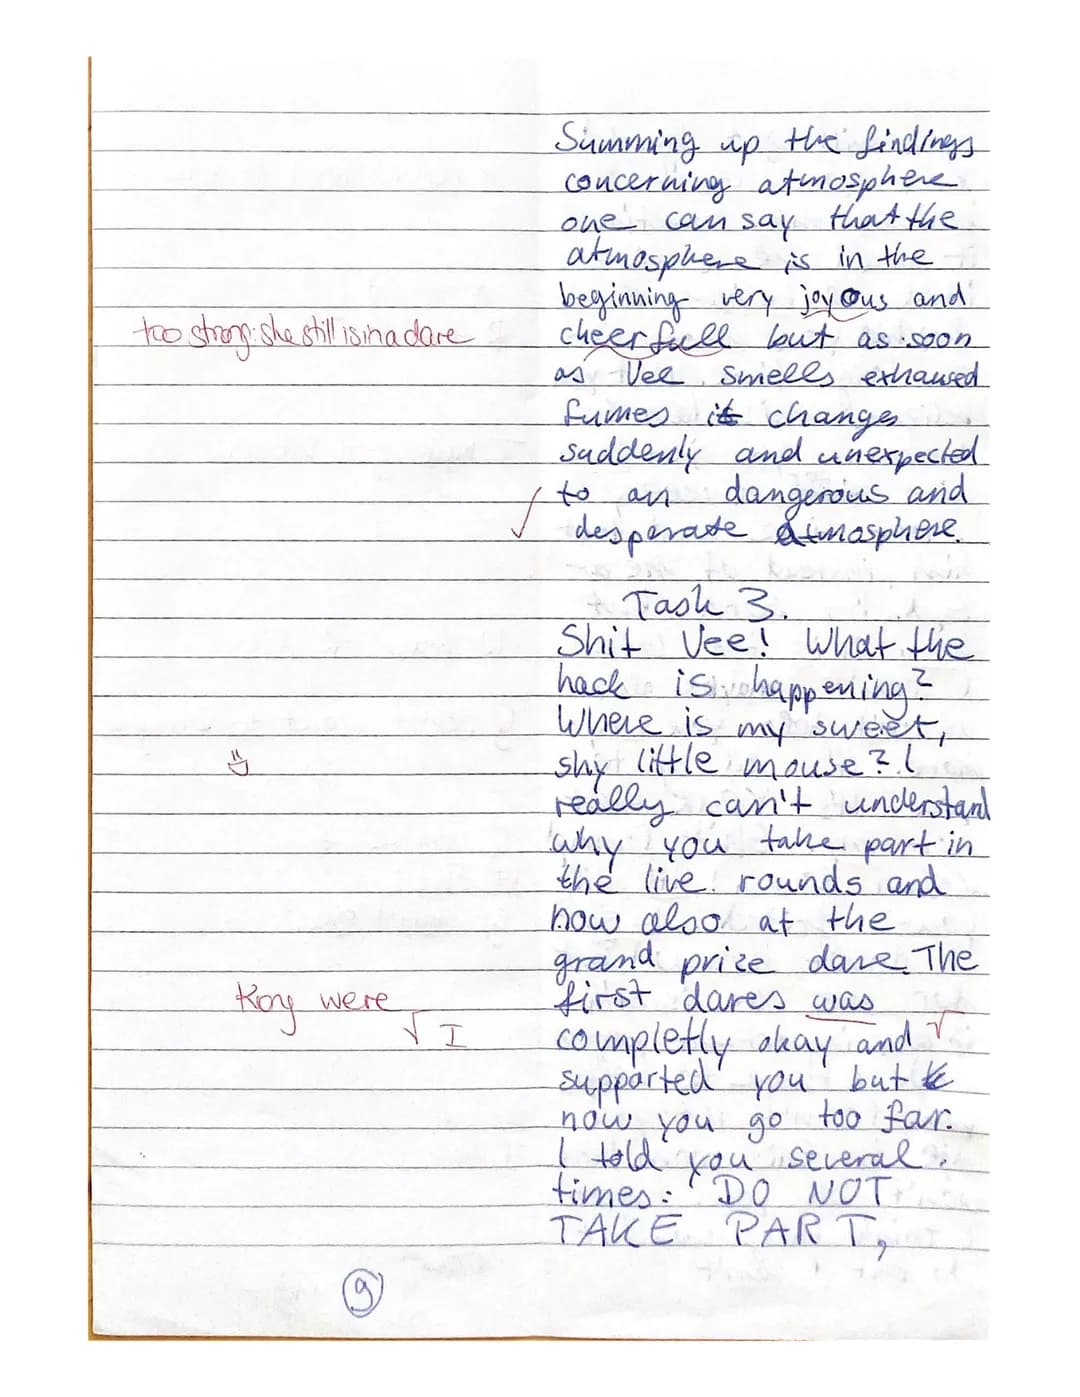 Summing up the findings
concerning atmosphere
one can say that the
atmosphere is in the
beginning very joyous and
too strong: she still is in a dare
cheerfull but as soon
as Vee smells exhaused
fumes it changes
suddenly and unexpected
to an dangerous and
desperate atmosphere.
Task 3.
Shit Vee! What the
hack is happening?
Where is my sweet,
shy little mouse? I
really can't understand
why you take part in
the live rounds and
now also at the
grand prize dare. The
Kong were
first dares was
√ I
completly okay and
supported you but
now you go too far.
I told you several
times: DO NOT
TAKE PART,
9